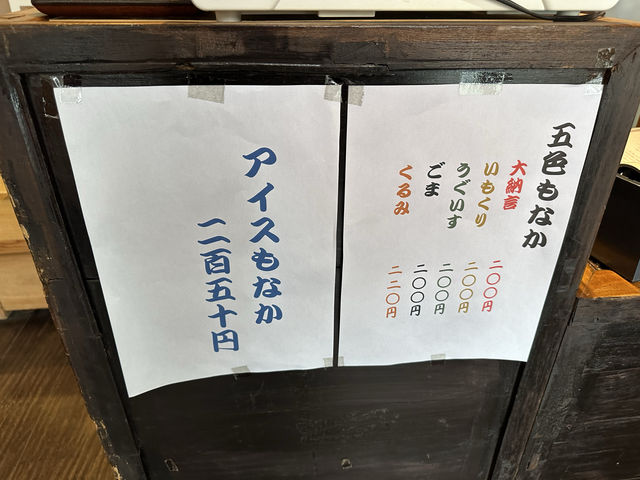 五色もなか
大納言 二〇〇円
いもくり 二〇〇円
うぐいす 二〇〇円
ごま 二〇〇円
くるみ 二二〇円
アイスもなか
二百五十円